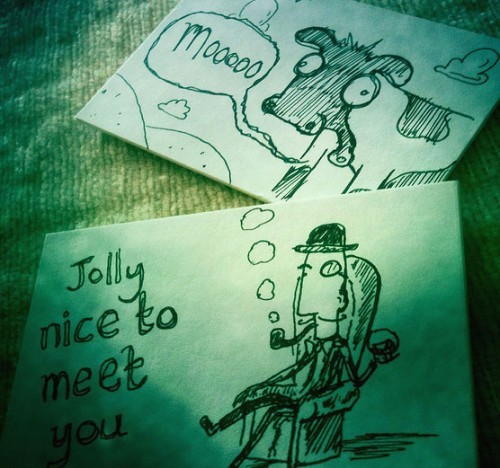 Mooooo
Jolly
nice to
meet
you